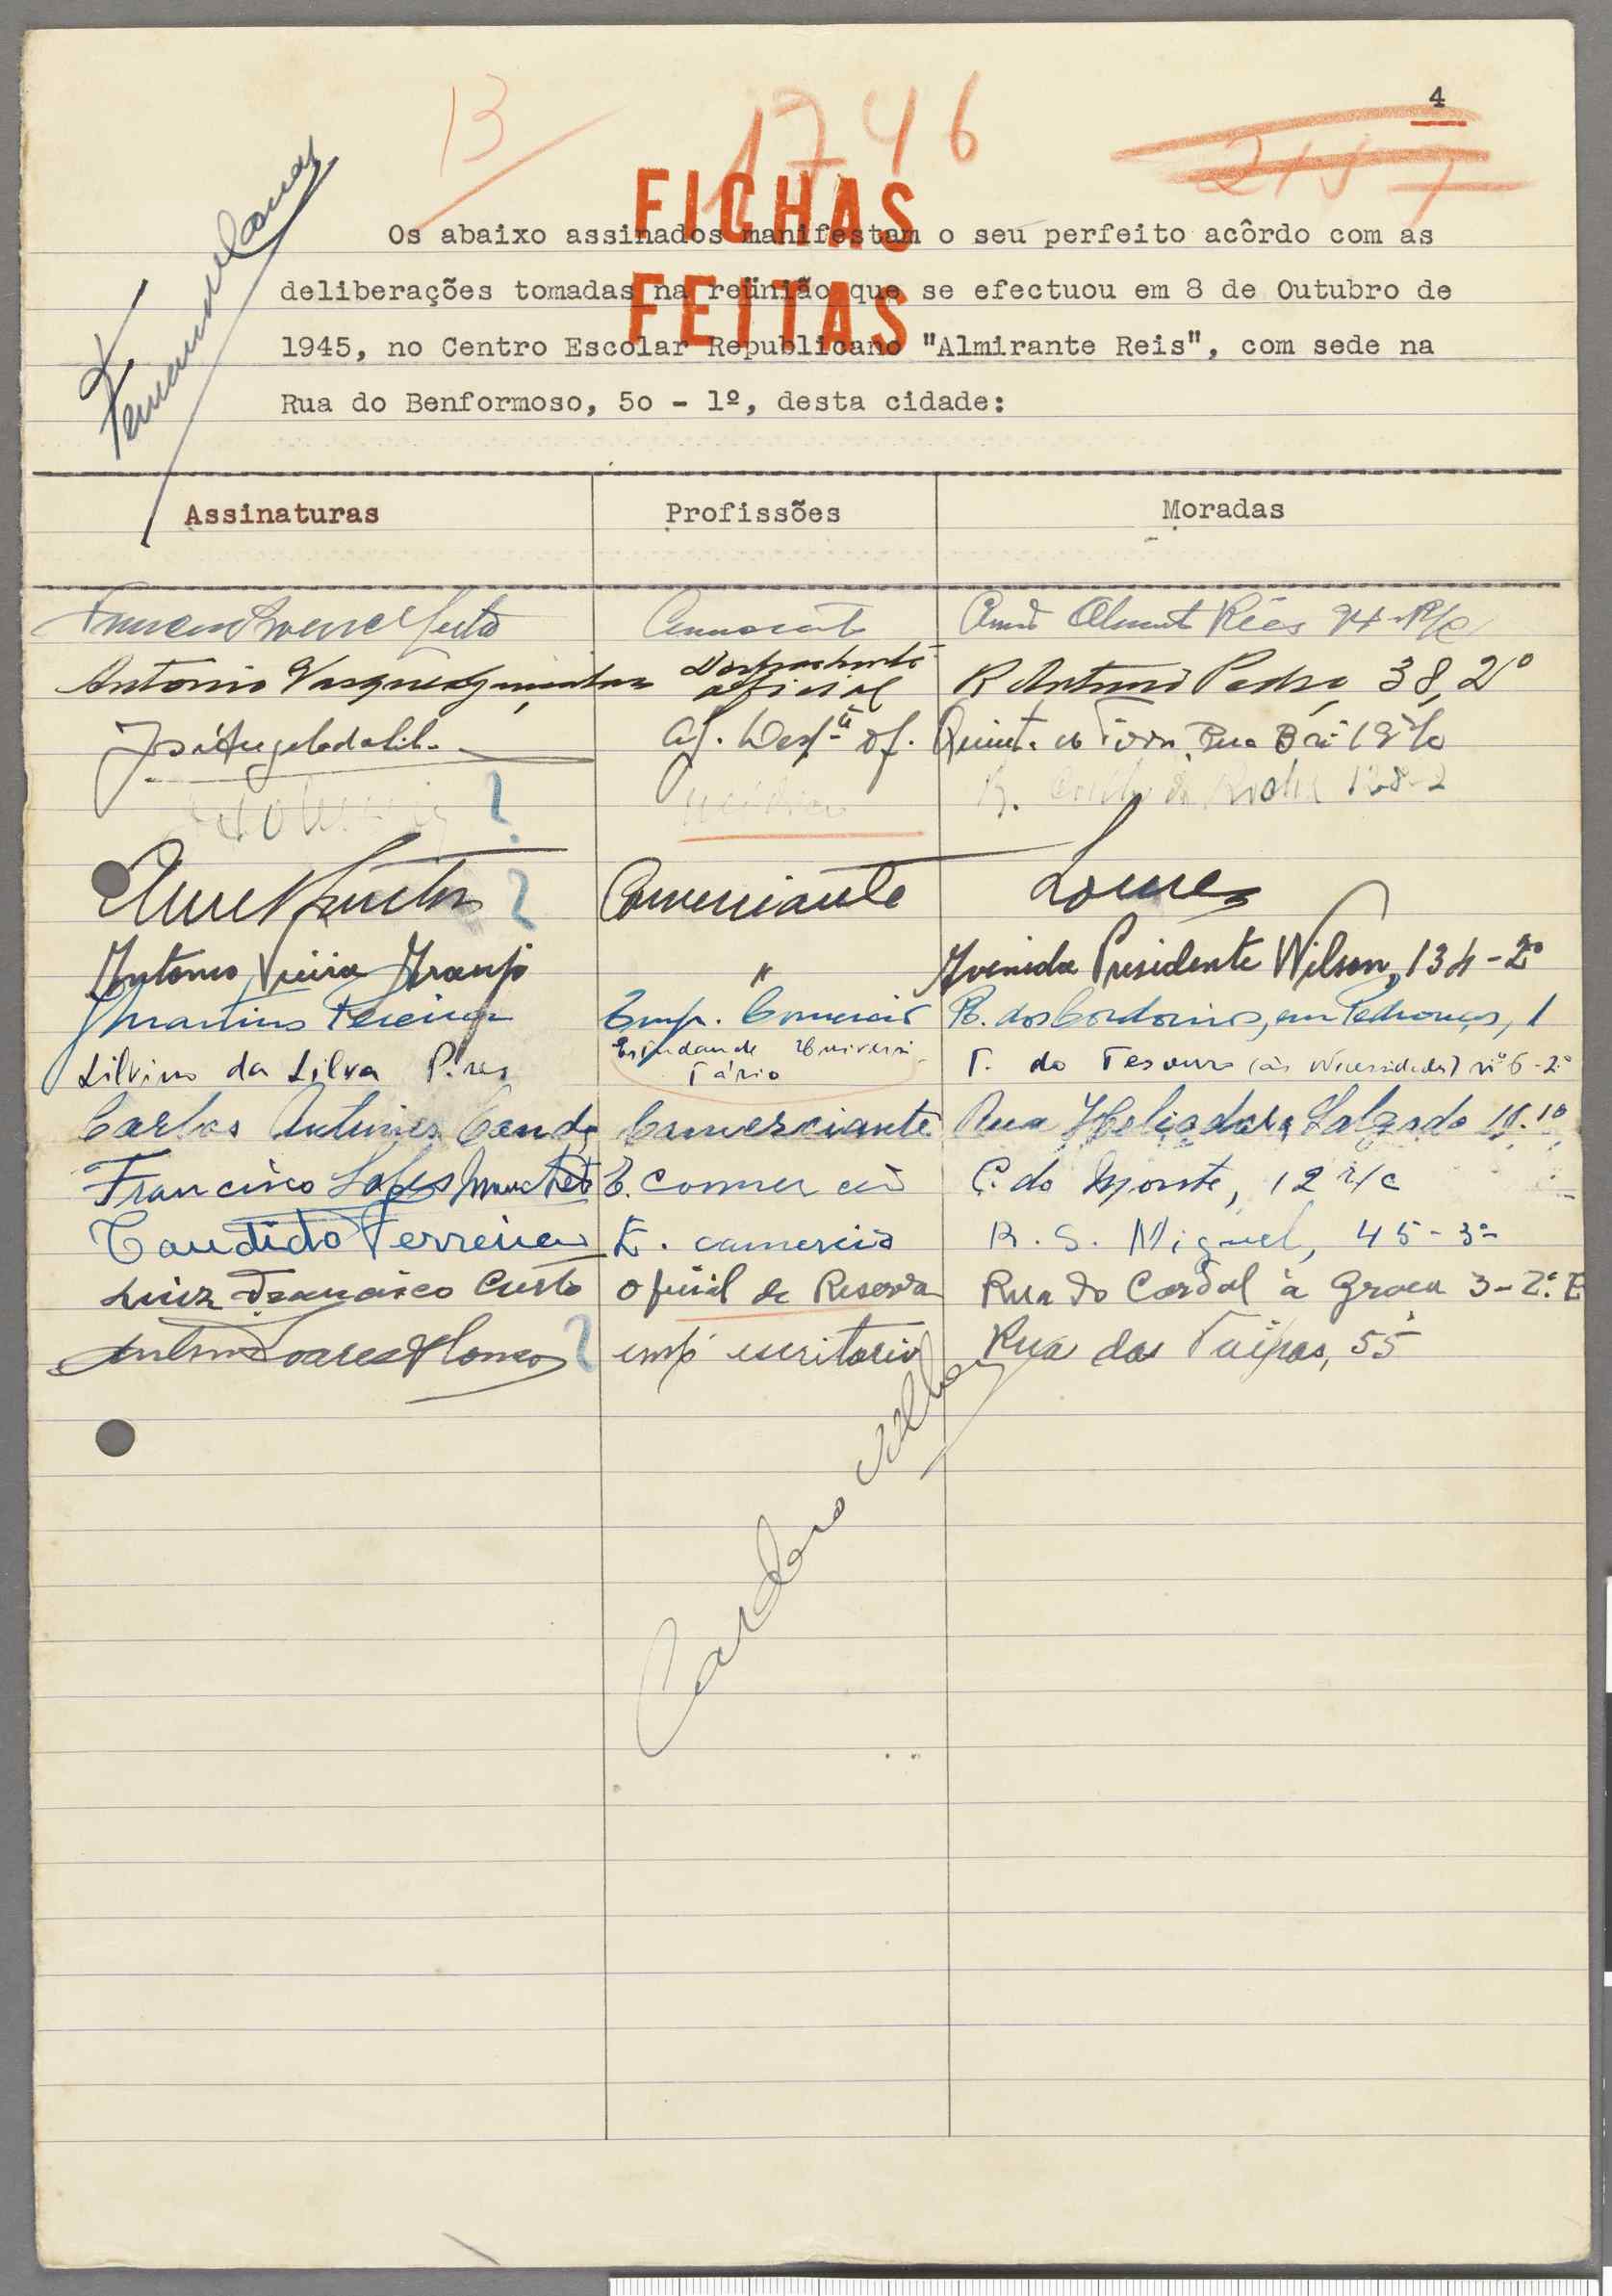 4
13
1746
FICHAS
FEITAS
Os abaixo assinados manifestam o seu perfeito acôrdo com as
deliberações tomadas na reünião que se efectuou em 8 de Outubro de
1945, no Centro Escolar Republicano "Almirante Reis", com sede na
Rua do Benformoso, 50 - 1º, desta cidade:
Assinaturas Profissões Moradas
Reis 94 R/C
Antonio Vasques Despachante oficial R Antonio Pedro, 38, 2º
José Angelo da Silva Aj. Desp.te of. Rua B
? R. Coelho da Rocha 128-2
? Comerciante Loures
Antonio Vieira Araujo " Avenida Presidente Wilson, 134-2º
Martins Pereira Emp. Comercio R. dos em Pedrouços, 1
Silvino da Silva Pires Estudante Universitário T. do Tesouro (às Necessidades) nº 6-2º
Carlos Antunes Comerciante Rua Heliodoro Salgado 1º
Francisco Lopes E. Commercio C. do Monte, 12 r/c
Candido Ferreira E. comercio R. S. Miguel, 45-3º
Luiz Francisco Custo Oficial de Reserva Rua do Cardal à Graça 3-2.º E
Soares Afonso ? emp. escritorio Rua das Taipas, 55
Cardoso